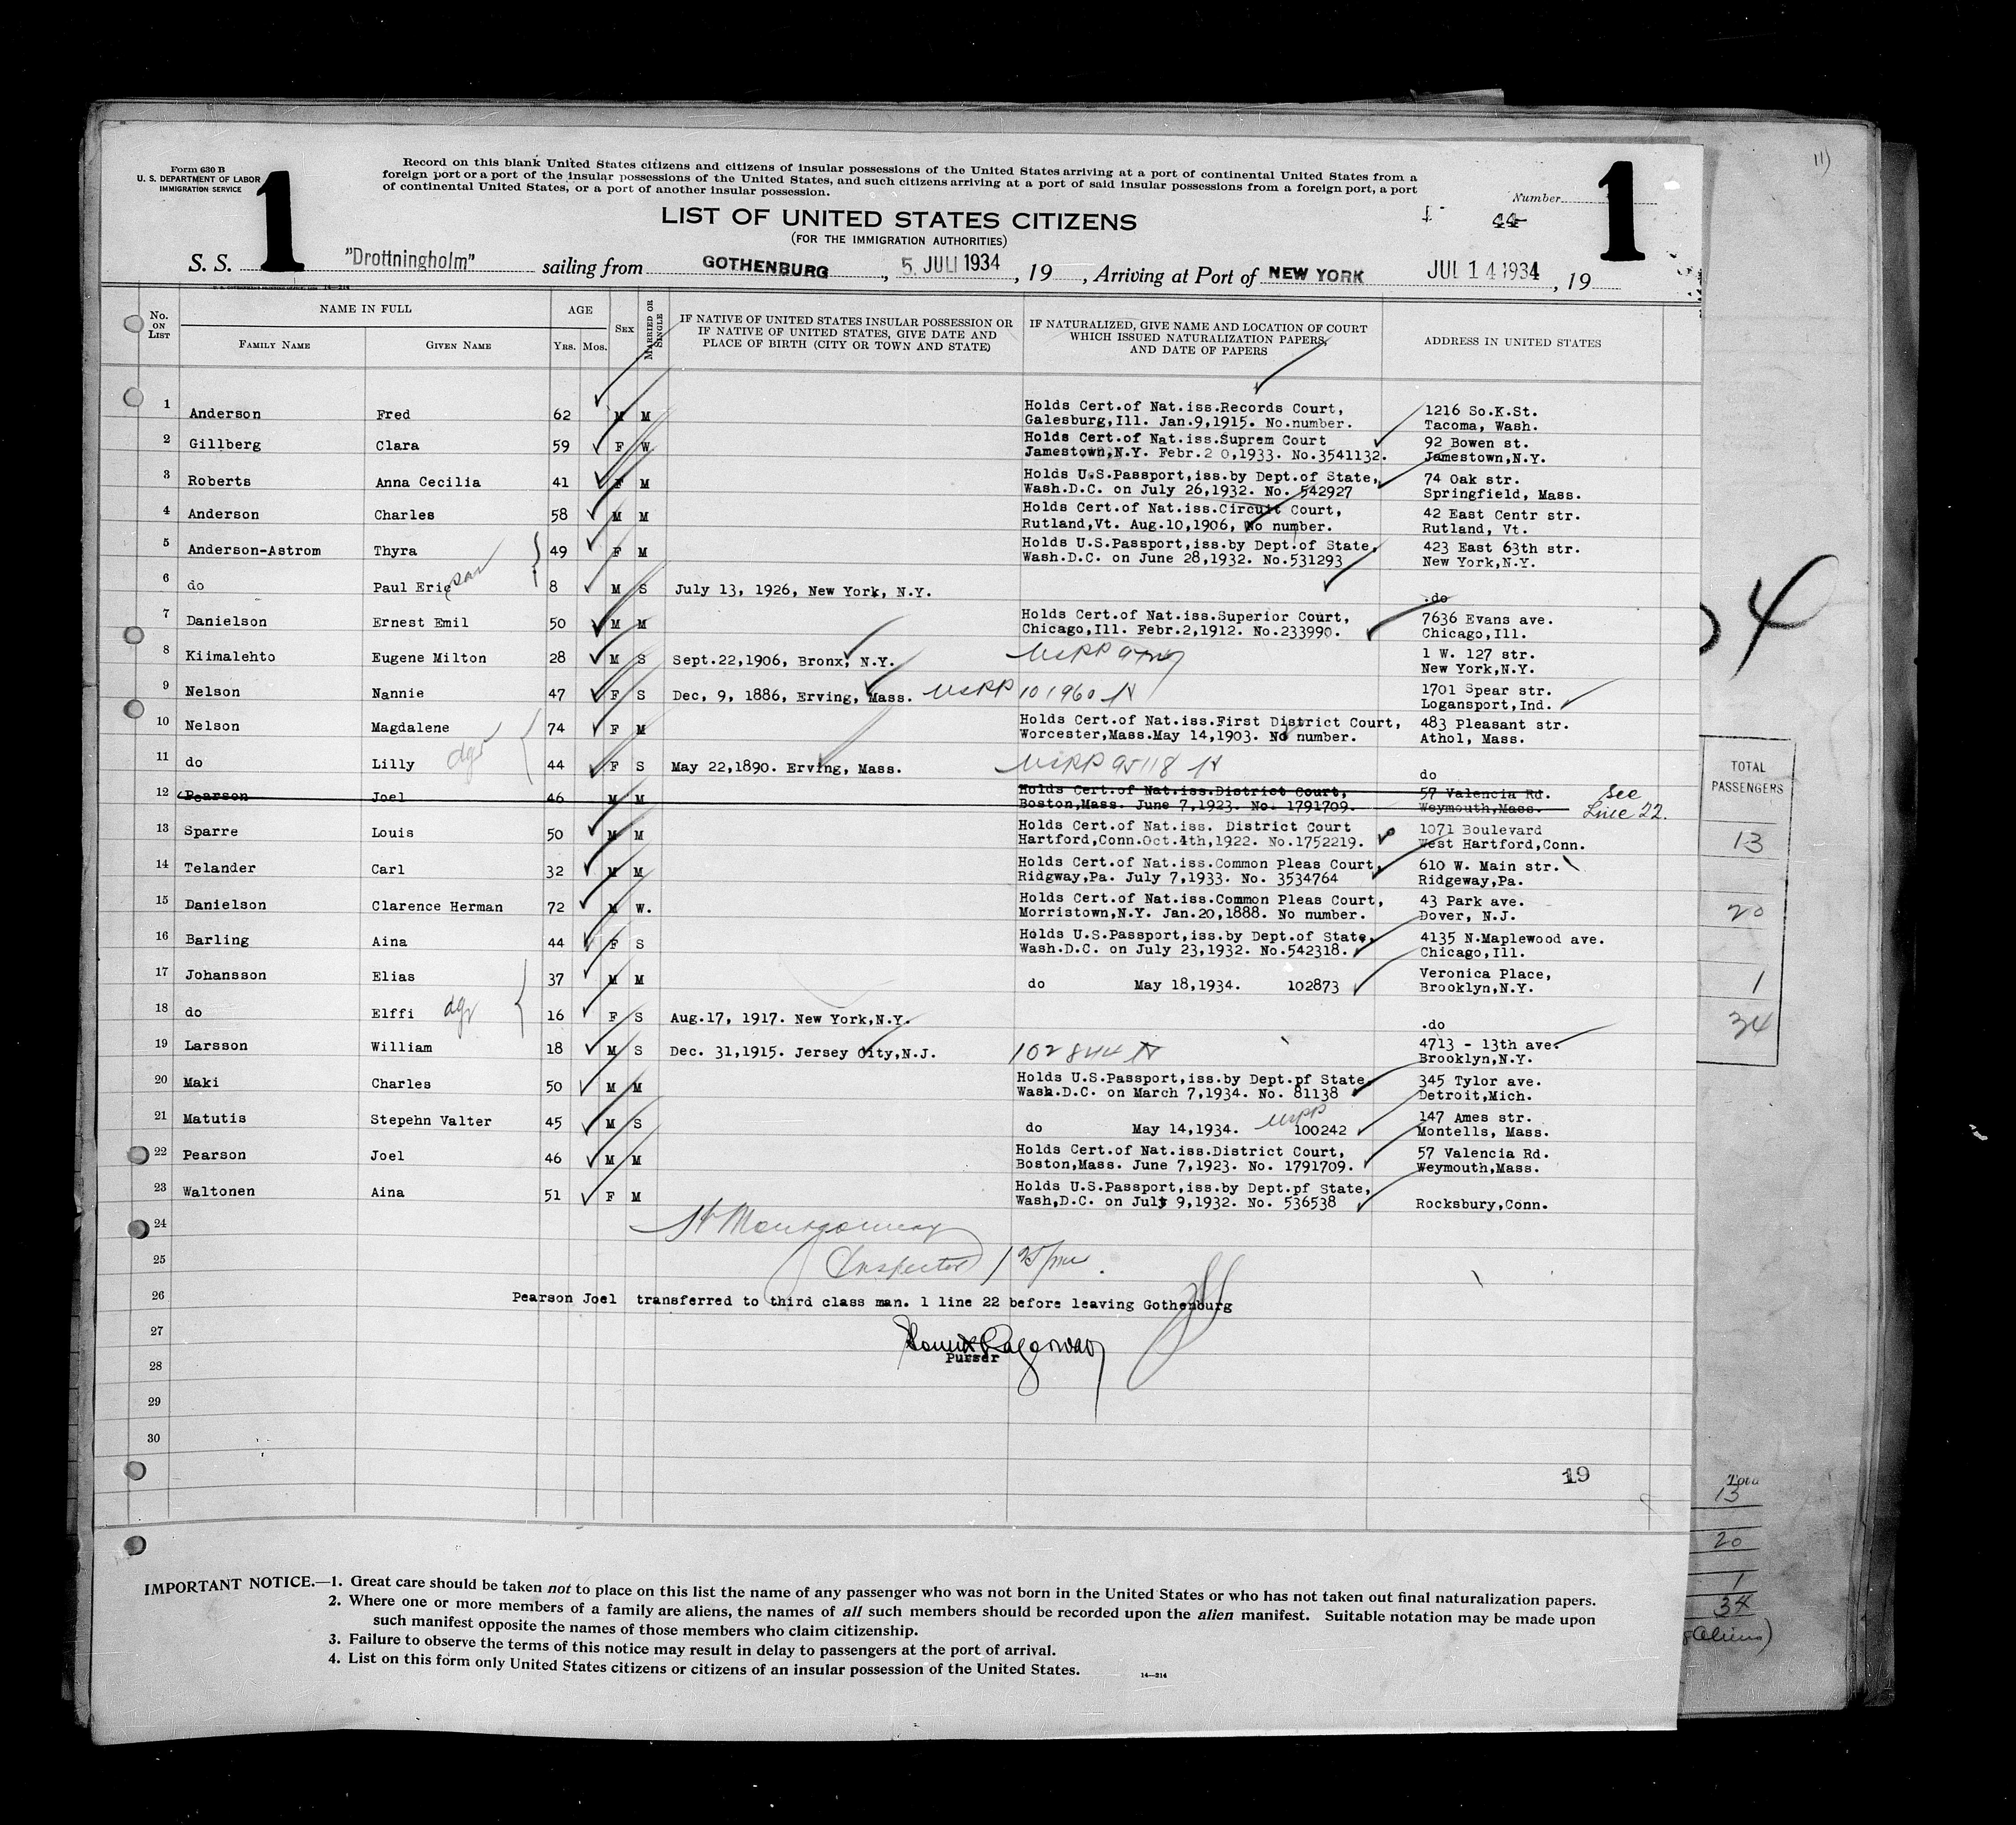 11)
Form 630 B
U. S. DEPARTMENT OF LABOR
IMMIGRATION SERVICE
1
Record on this blank United States citizens and citizens of insular possessions of the United States arriving at a port of continental United States from a
foreign port or a port of the insular possessions of the United States, and such citizens arriving at a port of said insular possessions from a foreign port, a port
of continental United States, or a port of another insular possession.
Number
1
44
LIST OF UNITED STATES CITIZENS
(FOR THE IMMIGRATION AUTHORITIES)
S. S. "Drottningholm" sailing from GOTHENBURG, 5. JULI 1934, 19 , Arriving at Port of NEW YORK JUL 14 1934, 19
No. ON LIST NAME IN FULL AGE SEX MARRIED OR SINGLE IF NATIVE OF UNITED STATES INSULAR POSSESSION OR IF NATIVE OF UNITED STATES, GIVE DATE AND PLACE OF BIRTH (CITY OR TOWN AND STATE) IF NATURALIZED, GIVE NAME AND LOCATION OF COURT WHICH ISSUED NATURALIZATION PAPERS, AND DATE OF PAPERS ADDRESS IN UNITED STATES
FAMILY NAME GIVEN NAME YRS. MOS.
1 Anderson Fred 62 M M Holds Cert.of Nat.iss.Records Court, 1216 So.K.St.
Galesburg,Ill. Jan.9,1915. No.number. Tacoma, Wash.
2 Gillberg Clara 59 F W Holds Cert.of Nat.iss.Suprem Court 92 Bowen st.
Jamestown,N.Y. Febr.2 0,1933. No.3541132. Jamestown,N.Y.
3 Roberts Anna Cecilia 41 F M Holds U.S.Passport,iss.by Dept.of State, 74 Oak str.
Wash.D.C. on July 26,1932. No. 542927 Springfield, Mass.
4 Anderson Charles 58 M M Holds Cert.of Nat.iss.Circuit Court, 42 East Centr str.
Rutland,Vt. Aug.10,1906, No number. Rutland, Vt.
5 Anderson-Astrom Thyra 49 F M Holds U.S.Passport,iss.by Dept.of State, 423 East 63th str.
Wash.D.C. on June 28,1932. No.531293 New York,N.Y.
6 do Paul Eric son 8 M S July 13, 1926, New York, N.Y. .do
7 Danielson Ernest Emil 50 M M Holds Cert.of Nat.iss.Superior Court, 7636 Evans ave.
Chicago,Ill. Febr.2,1912. No.233990. Chicago,Ill.
8 Kiimalehto Eugene Milton 28 M S Sept.22,1906, Bronx, N.Y. USPP 1 W. 127 str.
New York,N.Y.
9 Nelson Nannie 47 F S Dec, 9, 1886, Erving, Mass. USPP 101960 1701 Spear str.
Logansport,Ind.
10 Nelson Magdalene 74 F M Holds Cert.of Nat.iss.First District Court, 483 Pleasant str.
Worcester,Mass.May 14,1903. No number. Athol, Mass.
11 do Lilly dgr 44 F S May 22,1890. Erving, Mass. USPP 95118 do
12 Pearson Joel 46 M M Holds Cert.of Nat.iss.District Court, 57 Valencia Rd. See
Boston,Mass. June 7,1923. No. 1791709. Weymouth,Mass. Line 22.
13 Sparre Louis 50 M M Holds Cert.of Nat.iss. District Court 1071 Boulevard
Hartford,Conn.Oct.4th,1922. No.1752219. West Hartford,Conn.
14 Telander Carl 32 M M Holds Cert.of Nat.iss.Common Pleas Court, 610 W. Main str.
Ridgway,Pa. July 7,1933. No. 3534764 Ridgeway,Pa.
15 Danielson Clarence Herman 72 M W. Holds Cert.of Nat.iss.Common Pleas Court, 43 Park ave.
Morristown,N.Y. Jan.20,1888. No number. Dover, N.J.
16 Barling Aina 44 F S Holds U.S.Passport,iss.by Dept.of State, 4135 N.Maplewood ave.
Wash.D.C. on July 23,1932. No.542318. Chicago,Ill.
17 Johansson Elias 37 M M do May 18,1934. 102873 Veronica Place,
Brooklyn,N.Y.
18 do Elffi dgr 16 F S Aug.17, 1917. New York,N.Y. .do
19 Larsson William 18 M S Dec. 31,1915. Jersey City,N.J. 102844 4713 - 13th ave.
Brooklyn,N.Y.
20 Maki Charles 50 M M Holds U.S.Passport,iss.by Dept.pf State, 345 Tylor ave.
Wash.D.C. on March 7,1934. No. 81138 Detroit,Mich.
21 Matutis Stepehn Valter 45 M S do May 14,1934. USPP 100242 147 Ames str.
Montells, Mass.
22 Pearson Joel 46 M M Holds Cert.of Nat.iss.District Court, 57 Valencia Rd.
Boston,Mass. June 7,1923. No. 1791709. Weymouth,Mass.
23 Waltonen Aina 51 F M Holds U.S.Passport,iss.by Dept.pf State,
Wash,D.C. on July 9,1932. No. 536538 Rocksbury,Conn.
24 Montgomery
25 Inspector 1 25 pm.
26 Pearson Joel transferred to third class man. 1 line 22 before leaving Gothenburg
27
28 Purser
29
30
19
IMPORTANT NOTICE.—1. Great care should be taken not to place on this list the name of any passenger who was not born in the United States or who has not taken out final naturalization papers.
2. Where one or more members of a family are aliens, the names of all such members should be recorded upon the alien manifest. Suitable notation may be made upon
such manifest opposite the names of those members who claim citizenship.
3. Failure to observe the terms of this notice may result in delay to passengers at the port of arrival.
4. List on this form only United States citizens or citizens of an insular possession of the United States.
14—214
4
TOTAL
PASSENGERS
13
20
1
34
Total
13
20
1
34
Aliens)